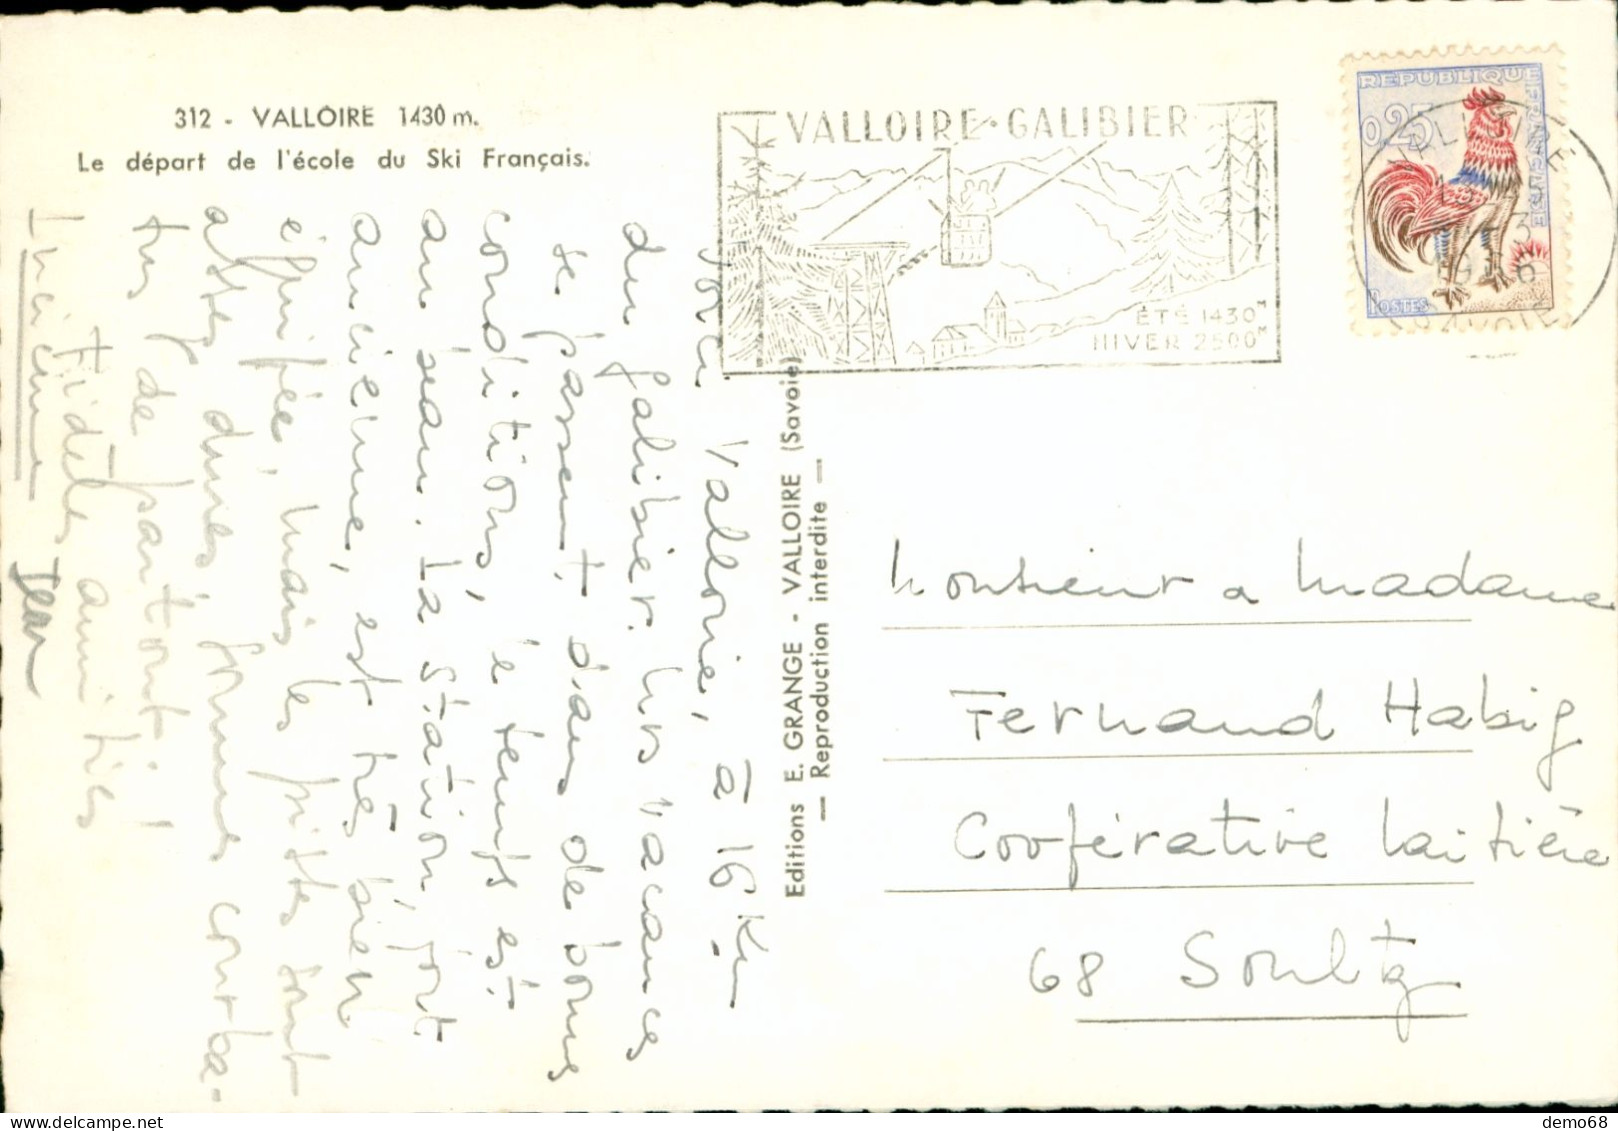 312 - VALLOIRE 1430 m.
Le départ de l'école du Ski Français.
VALLOIRE · GALIBIER
ÉTÉ 1430M
HIVER 2500M
REPUBLIQUE
FRANÇAISE
0,25
POSTES
SAVOIE
Valloire, à 16 Km
du Galibier. Nos vacances
se passent dans de bonnes
conditions, le temps est
au beau. La station, fort
ancienne, est très bien
équipée, mais les pistes sont
assez dures, sommes courba-
tus de partout !
Fidèles amitiés
Lucienne Jean
Editions E. GRANGE - VALLOIRE (Savoie)
— Reproduction interdite —
Monsieur & Madame
Fernand Habig
Coopérative Laitière
68 Soultz
delcampe.net
demo68